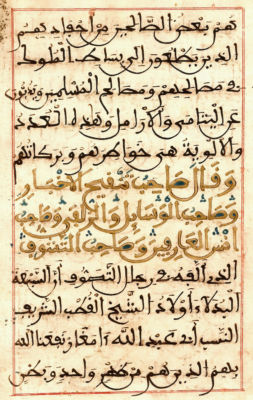 هم بعض الصالحين من احفاد بهم
الذين يظهرون الى بساط الملوك
في مصالحهم ومصالح المسلمين
على اليتامى والارامل وهذه العدد
والالوية هي خواصهم وبركاتهم
وقال صاحب تنقيح الاخبار
وصاحب الوسايل والزلفى وصاحب
انس العارفين وصاحب التصوف
الذي في رجال التصوف ان السبعة
البدلاء اولاد الشيخ القطب الشريف
النسب ابي عبد الله امغار نفعنا الله
بهم الذين هم من ظهر واحد وبطن